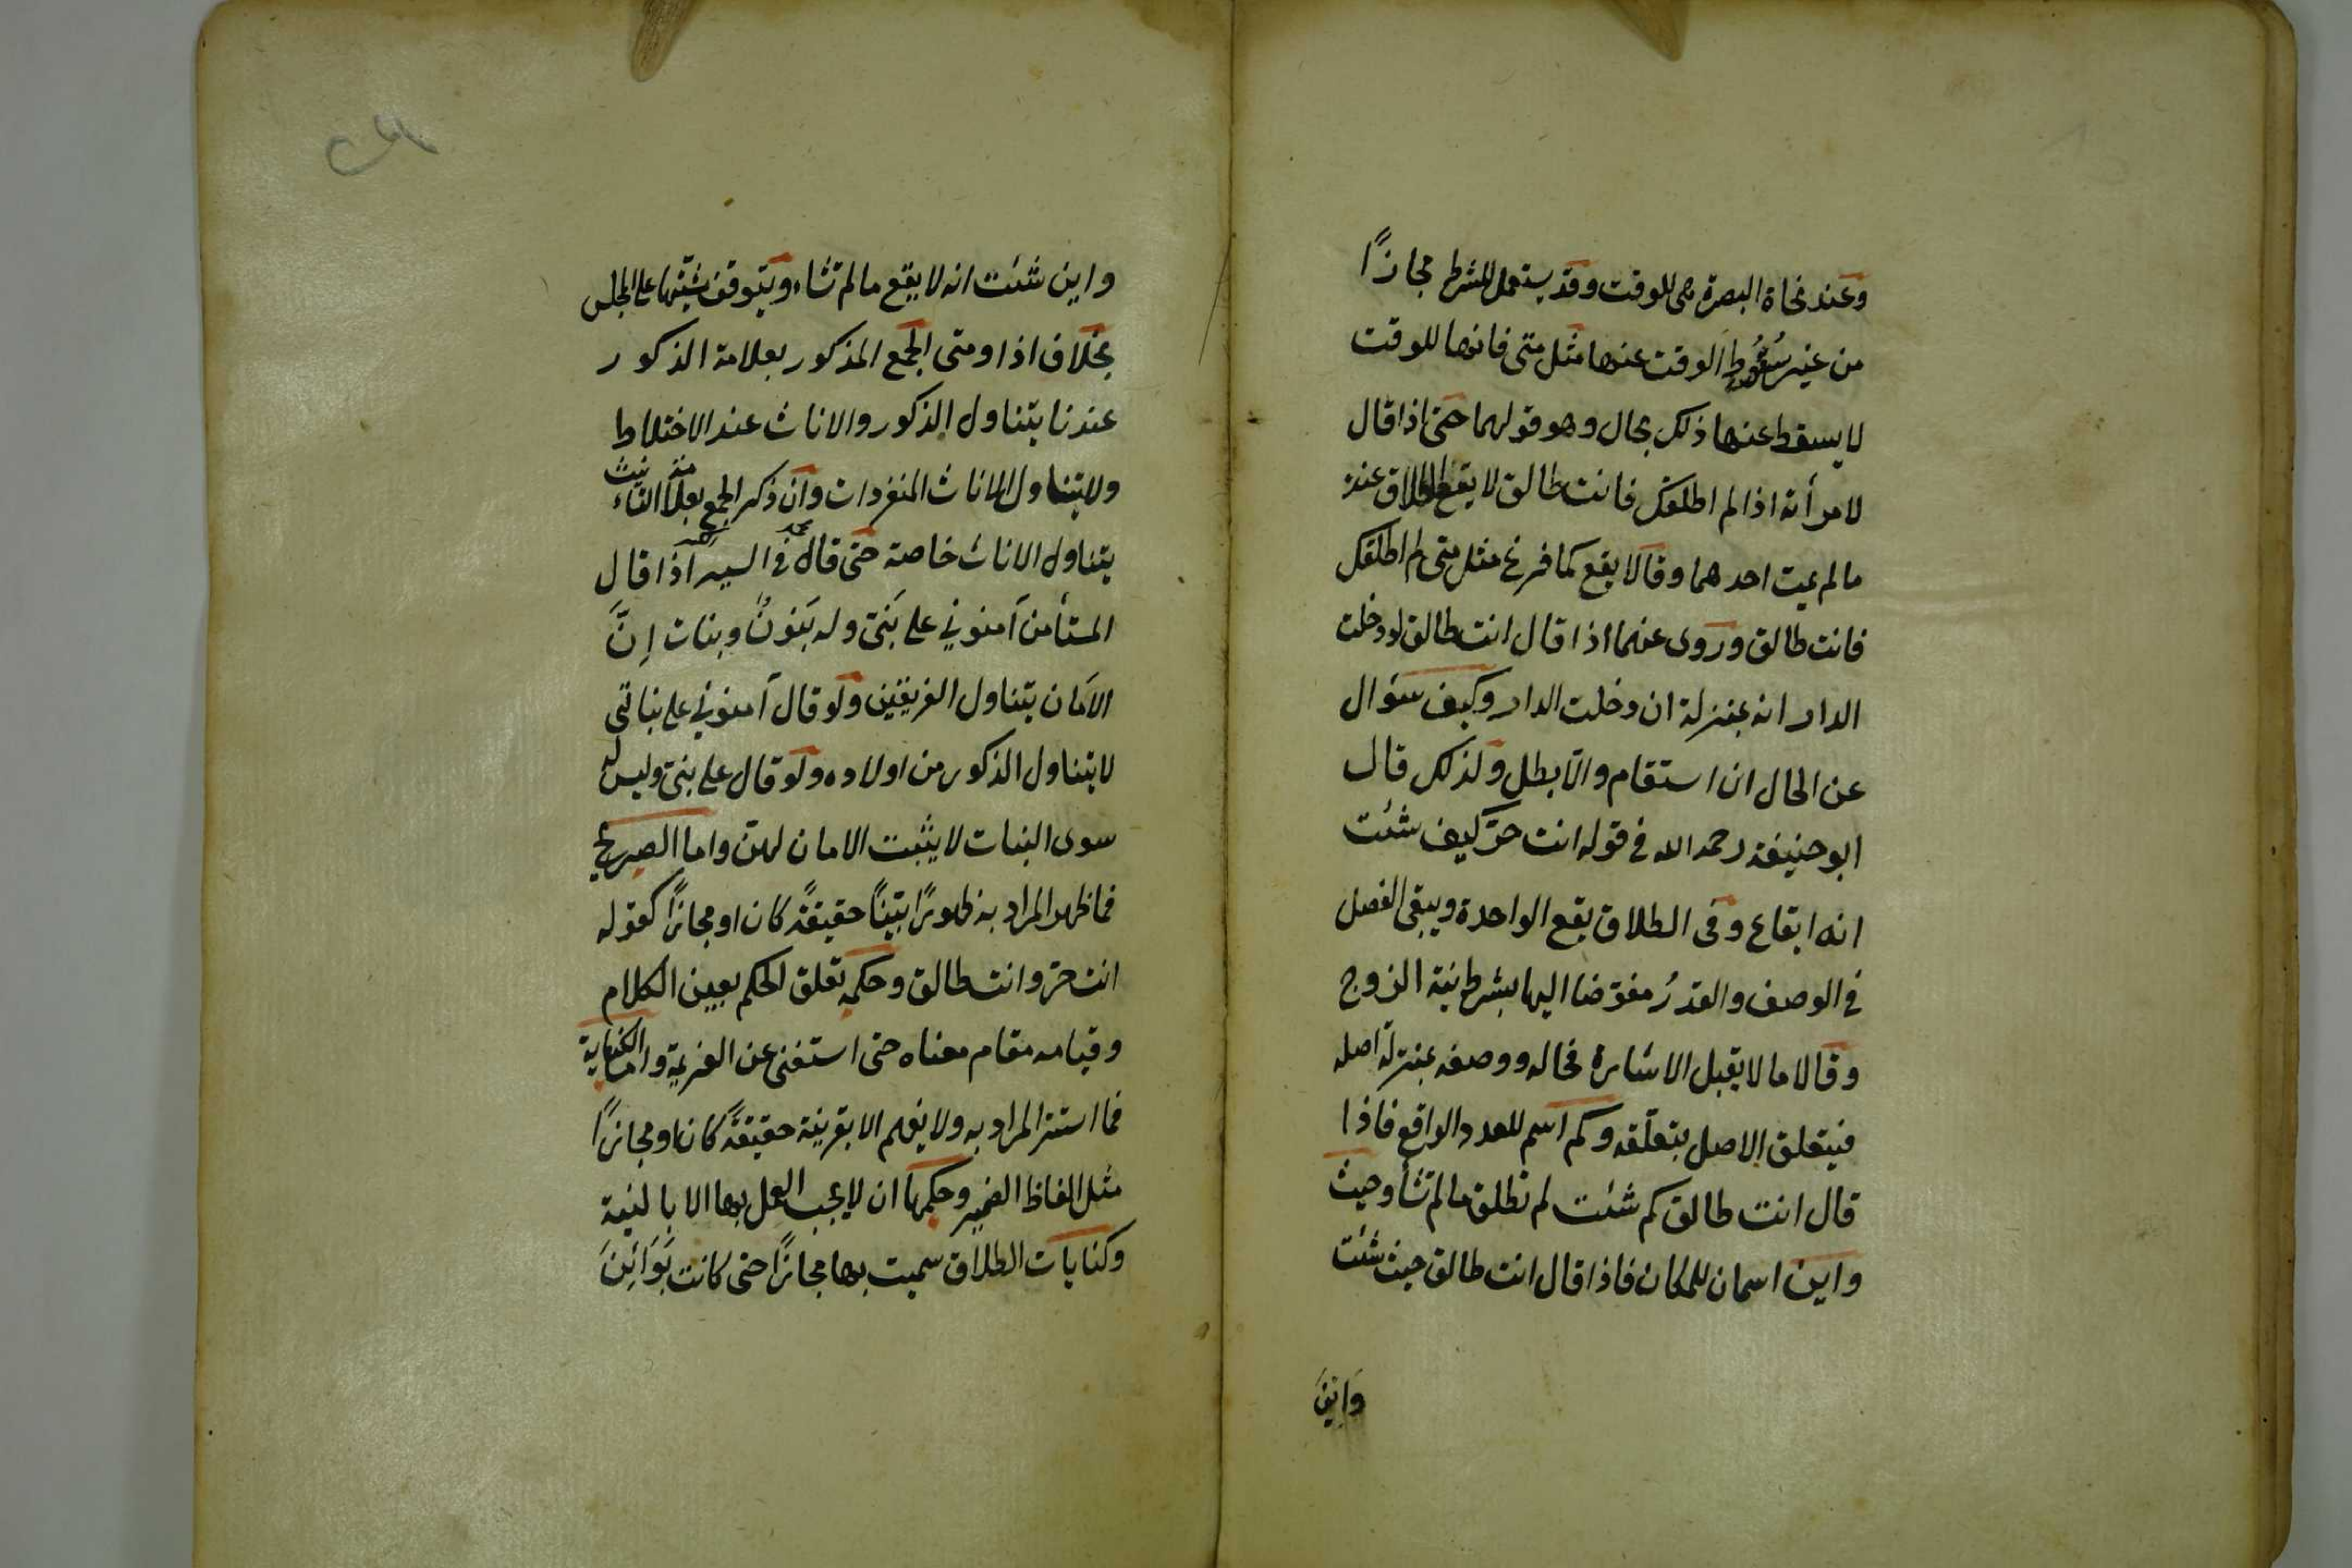 وعند نحاة البصرة هي للوقت وقد يستعمل للشرط مجازًا
من غير سُقُوط الوقت عنها مثل متى فانها للوقت
لا يسقط عنها ذلك بحال وهو قولهما حتى اذا قال
لامرأته اذا لم اطلقك فانت طالق لا يقع الطلاق عنده
ما لم يمت احدهما وقالا يقع كما فرغ مثل متى لم اطلقك
فانت طالق وروى عنهما اذا قال انت طالق لو دخلت
الدار انه بمنزلة ان دخلت الدار وكيف سؤال
عن الحال ان استقام والّا بطل ولذلك قال
ابو حنيفة رحمه الله في قوله انت حرّ كيف شئت
انه ايقاع وفى الطلاق يقع الواحدة ويبقى الفضل
في الوصف والقدرُ مفوّضا اليها بشرط نية الزوج
وقالا ما لا يقبل الاشارة فحاله ووصفه بمنزلة اصله
فيتعلق الاصل بتعلّقه وكم اسم للعدد الواقع فاذا
قال انت طالق كم شئت لم تطلق ما لم تشأ وحيث
واين اسمان للمكان فاذا قال انت طالق حيث شئت
وَاينَ
واين شئت انه لا يقع ما لم تشاء ويتوقف مشيّتها على المجلس
بخلاف اذا ومتى الجمع المذكور بعلامة الذكور
عندنا يتناول الذكور والاناث عند الاختلاط
ولا يتناول الاناث المنفردات وان ذكر الجمع بعلامة التأنيث
يتناول الاناث خاصة حتى قال محمد رحمه الله في السير اذا قال
المستأمن آمنوني على بَنيّ وله بَنونٌ وبنات اِنَّ
الاَمان يتناول الفريقين ولو قال آمنوني على بناتى
لا يتناول الذكور من اولاده ولو قال على بنىّ وليس له
سوى البنات لا يثبت الامان لهنّ واما الصريح
فما ظهر المراد به ظهورًا بيّنًا حقيقةً كان او مجازًا كقوله
انت حرّ وانت طالق وحكمه تعلق الحكم بعين الكلام
وقيامه مقام معناه حتى استغنى عن العزيمة واما الكناية
فما استتر المراد به ولا يفهم الا بقرينة حقيقةً كان او مجازًا
مثل الفاظ الضمير وحكمها ان لا يجب العمل بها الا بالنية
وكنايات الطلاق سميت بها مجازًا حتى كانت بَوَائِنَ